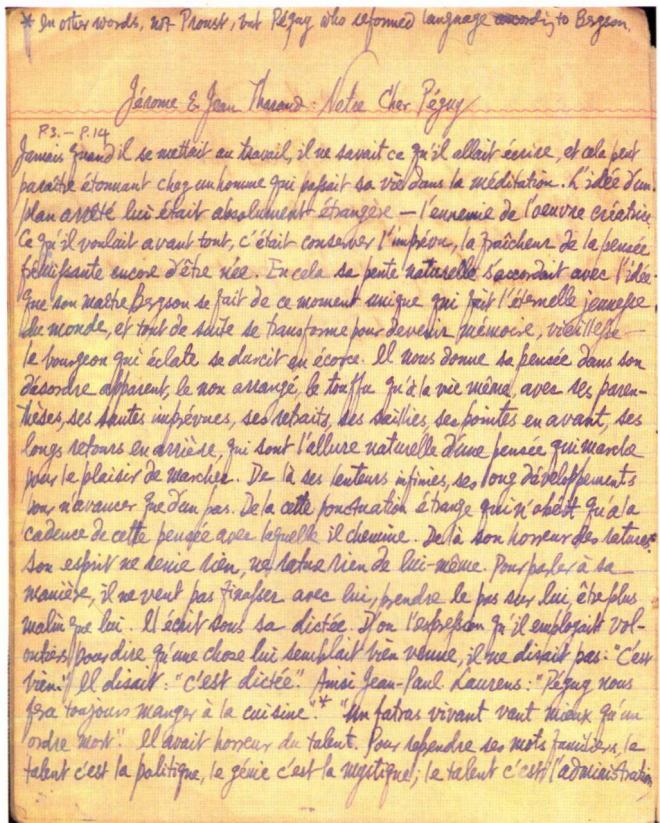 * In other words, not Proust, but Péguy who reformed language according to Bergson.
Jérome & Jean Tharaud: Notre Cher Péguy
P3. – P.14
Jamais quand il se mettait au travail, il ne savait ce qu'il allait écrire, et cela peut
paraître étonnant chez un homme qui passait sa vie dans la méditation. L'idée d'un
plan arrêté lui était absolument étrangère — l'ennemie de l'oeuvre créatrice.
Ce qu'il voulait avant tout, c'était conserver l'imprévu, la fraîcheur de la pensée
frémissante encore d'être née. En cela sa pente naturelle s'accordait avec l'idée
que son maître Bergson se fait de ce moment unique qui fait l'éternelle jeunesse
du monde, et tout de suite se transforme pour devenir mémoire, vieillesse —
le bourgeon qui éclate se durcit en écorce. Il nous donne sa pensée dans son
désordre apparent, le non arrangé, le touffu qu'a la vie même, avec ses paren-
thèses, ses sautes imprévues, ses retraits, ses saillies, ses pointes en avant, ses
longs retours en arrière, qui sont l'allure naturelle d'une pensée qui marche
pour le plaisir de marcher. De là ses lenteurs infinies, ses long développements
pour n'avancer que d'un pas. De là cette ponctuation étrange qui n'obéit qu'à la
cadence de cette pensée avec laquelle il chemine. De là son horreur des ratures.
Son esprit ne renie rien, ne rature rien de lui-même. Pour parler à sa
manière, il ne veut pas finasser avec lui, prendre le pas sur lui, être plus
malin que lui. Il écrit sous sa dictée. D'où l'expression qu'il employait vol-
ontiers pour dire qu'une chose lui semblait bien venue, il ne disait pas: "C'est
bien." Il disait: "c'est dictée". Ainsi Jean-Paul Laurens: "Péguy nous
fera toujours manger à la cuisine".* "Un fatras vivant vaut mieux qu'un
ordre mort". Il avait horreur du talent. Pour reprendre ses mots familiers, le
talent c'est la politique, le génie c'est la mystique; le talent c'est l'administration